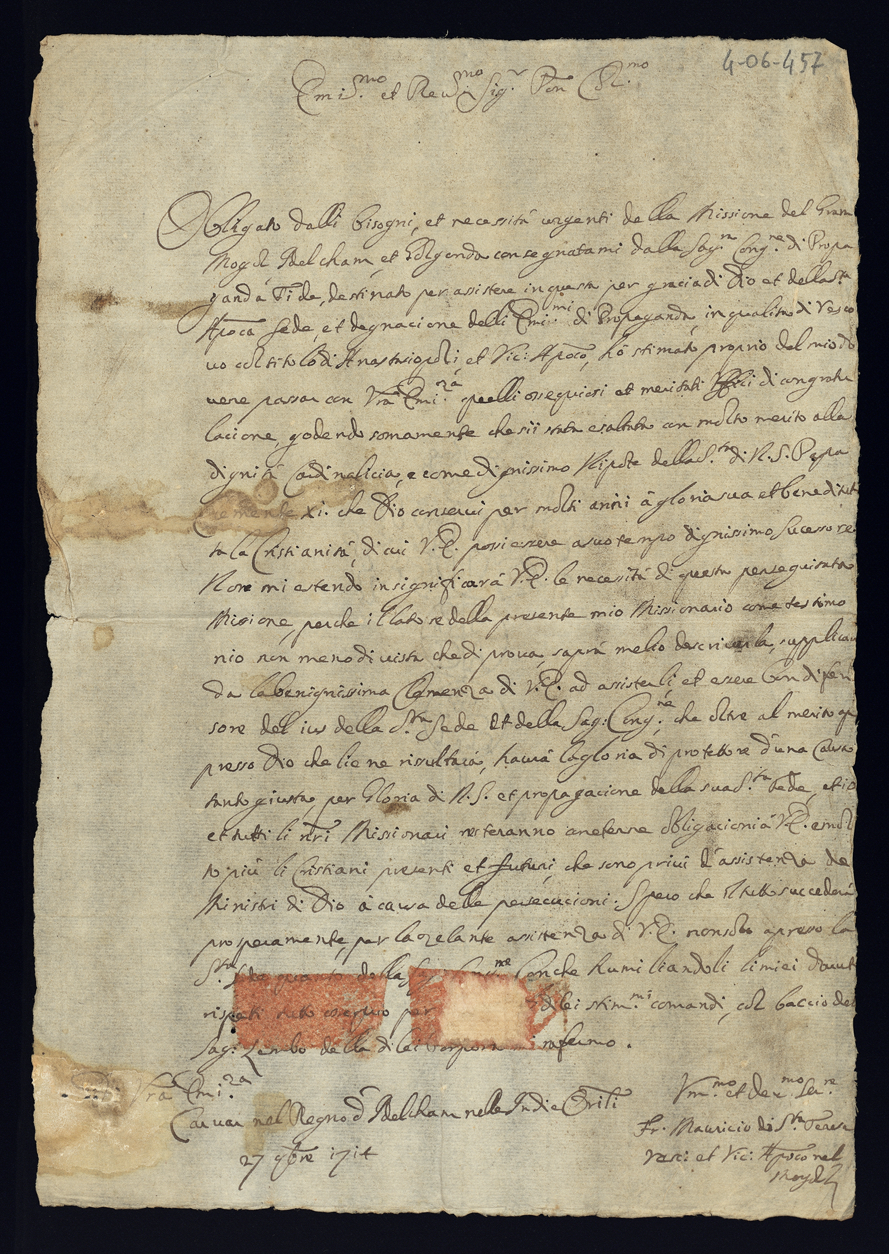 4-06-457
Emi.mo et Reu.mo Sig.r Pron Col.mo
Obligato dalli bisogni, et necessità urgenti della Missione del Gram
Mogol Idelcham, et Golgonda consegnatami dalla Sag.ra Cong.ne di Propa
ganda Fide, destinato per assistere in questa per gracia di Dio et della S.ta
Apoca Sede, et degnacione delli Emi.mi di Propaganda, in qualita di Vesco
uo col titolo di Anastasiopoli, et Vic: Apoco, hò stimato proprio del mio do
uere passar con Vra Emi.za quelli ossequiosi et meritati Uffici di congratu
lacione, godendo somamente che sii stata esaltata con molto merito alla
dignità Cardinalicia, e come dignissimo Nipote della S.tà di N. S. Papa
Clemente xi. che Dio conserui per molti anni à gloria sua et benedi tut
ta la Cristianità, di cui V.E. possi essere a suo tempo dignissimo Sucessore
Non mi estendo in significar à V.E. le necessità di questa perseguitata
Missione, perche il latore della presente mio Missionario come testimo
nio non meno di uista che di proua, saprà melio descriuerla, supplican
do la benignissima Clemenza di V.E. ad assisterli et essere bon difen
sore del ius della S.ta Sede et della Sag: Cong.ne, che oltre al merito ap
presso Dio che lie ne risultarà, haurà la gloria di protettore d'una Causa
tanto giusta, per Gloria di N. S. et propagacione della sua S.ta Fede, et io
et tutti li nri Missionari resteranno in eterne obligacioni à V.E. e mol
to più li Cristiani presenti et futuri, che sono priui d'assistenza de
Ministri di Dio à causa delle persecucioni. Spero che il tutto succederà
prosperamente, per la zelante assistenza di V.E. non solo apresso la
S.ta Sede quanto della Sag: Cong.ne Con che humiliandoli li miei douuti
rispeti tutto osequio per di lei stim.mi comandi, col baccio del
Sag: Lembo della di lei Porpora mi rafermo.
Di Vra Emi.za
Caruar nel Regno d'Idelcham nelle Indie Oriti
27 9bre 1714
Vm.mo et deu.mo Ser.re
Fr. Mauricio di S.ta Teresa
Vesc: et Vic: Apoco nel
Mogol